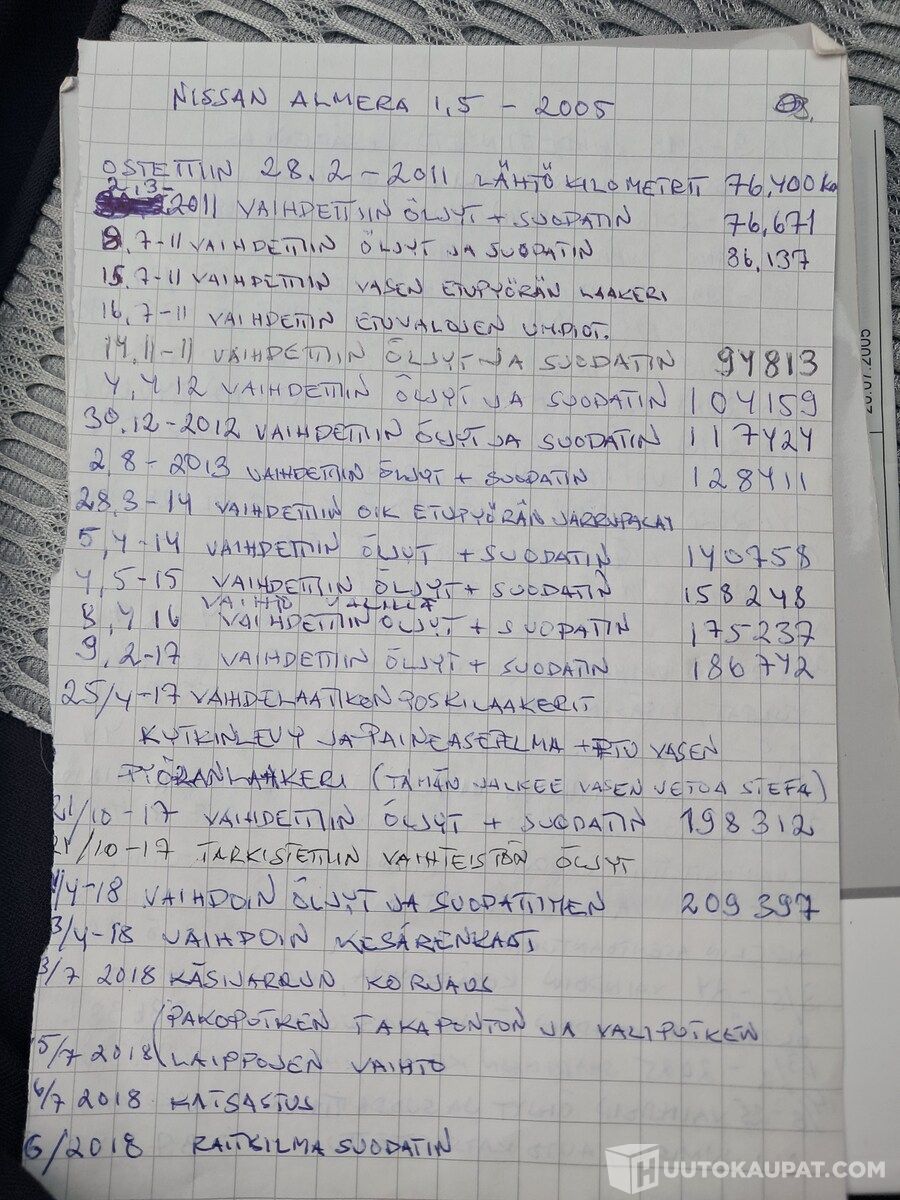 NISSAN ALMERA 1,5 - 2005
OSTETTIIN 28.2 - 2011 LÄHTÖ KILOMETRIT 76,400 km
2,3-2011 VAIHDETTIIN ÖLJYT + SUODATIN 76,671
8.7-11 VAIHDETTIIN ÖLJYT JA SUODATIN 86,137
15.7-11 VAIHDETTIIN VASEN ETUPYÖRÄN LAAKERI
16.7-11 VAIHDETTIIN ETUVALOJEN UMPIOT.
14.11-11 VAIHDETTIIN ÖLJYT JA SUODATIN 94813
4,4 12 VAIHDETTIIN ÖLJYT JA SUODATIN 104159
30.12-2012 VAIHDETTIIN ÖLJYT JA SUODATIN 117424
2,8 - 2013 VAIHDETTIIN ÖLJYT + SUODATIN 128411
28.3-14 VAIHDETTIIN OIK ETUPYÖRÄN JARRUPALAT
5,4-14 VAIHDETTIIN ÖLJYT + SUODATIN 140758
4,5-15 VAIHDETTIIN ÖLJYT + SUODATIN 158248
VAIHTO VÄLILLÄ
8,4 16 VAIHDETTIIN ÖLJYT + SUODATIN 175237
9,2-17 VAIHDETTIIN ÖLJYT + SUODATIN 186742
25/4-17 VAIHDELAATIKON POSKILAAKERIT
KYTKINLEVY JA PAINEASETELMA + ETU VASEN
PYÖRÄNLAAKERI (TÄMÄN JÄLKEE VASEN VETOA STEFA)
21/10-17 VAIHDETTIIN ÖLJYT + SUODATIN 198312
21/10-17 TARKISTETTIIN VAIHTEISTÖN ÖLJYT
/4-18 VAIHDOIN ÖLJYT JA SUODATTIMEN 209 397
3/4-18 VAIHDOIN KESÄRENKAAT
3/7 2018 KÄSIJARRUN KORJAUS
PAKOPUTKEN TAKAPONTON JA VÄLIPUTKEN
5/7 2018 (LAIPPOJEN VAIHTO
6/7 2018 KATSASTUS
6/2018 RAITISILMA SUODATIN
20.07.2005
HUUTOKAUPAT.COM